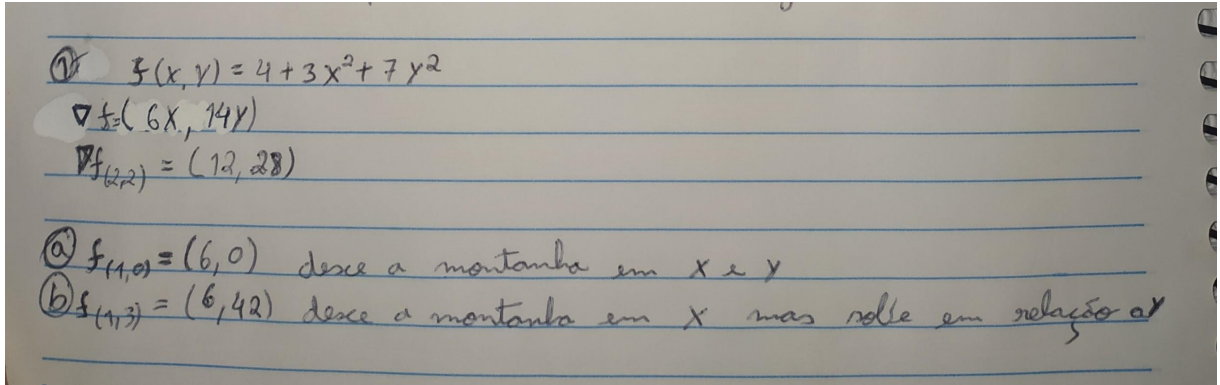 ② f(x,y) = 4 + 3x² + 7y²
∇f=( 6x, 14y)
∇f(2,2) = (12, 28)
ⓐ f(1,0) = (6,0) desce a montanha em x e y
ⓑ f(1,3) = (6,42) desce a montanha em x mas sobe em relação a y